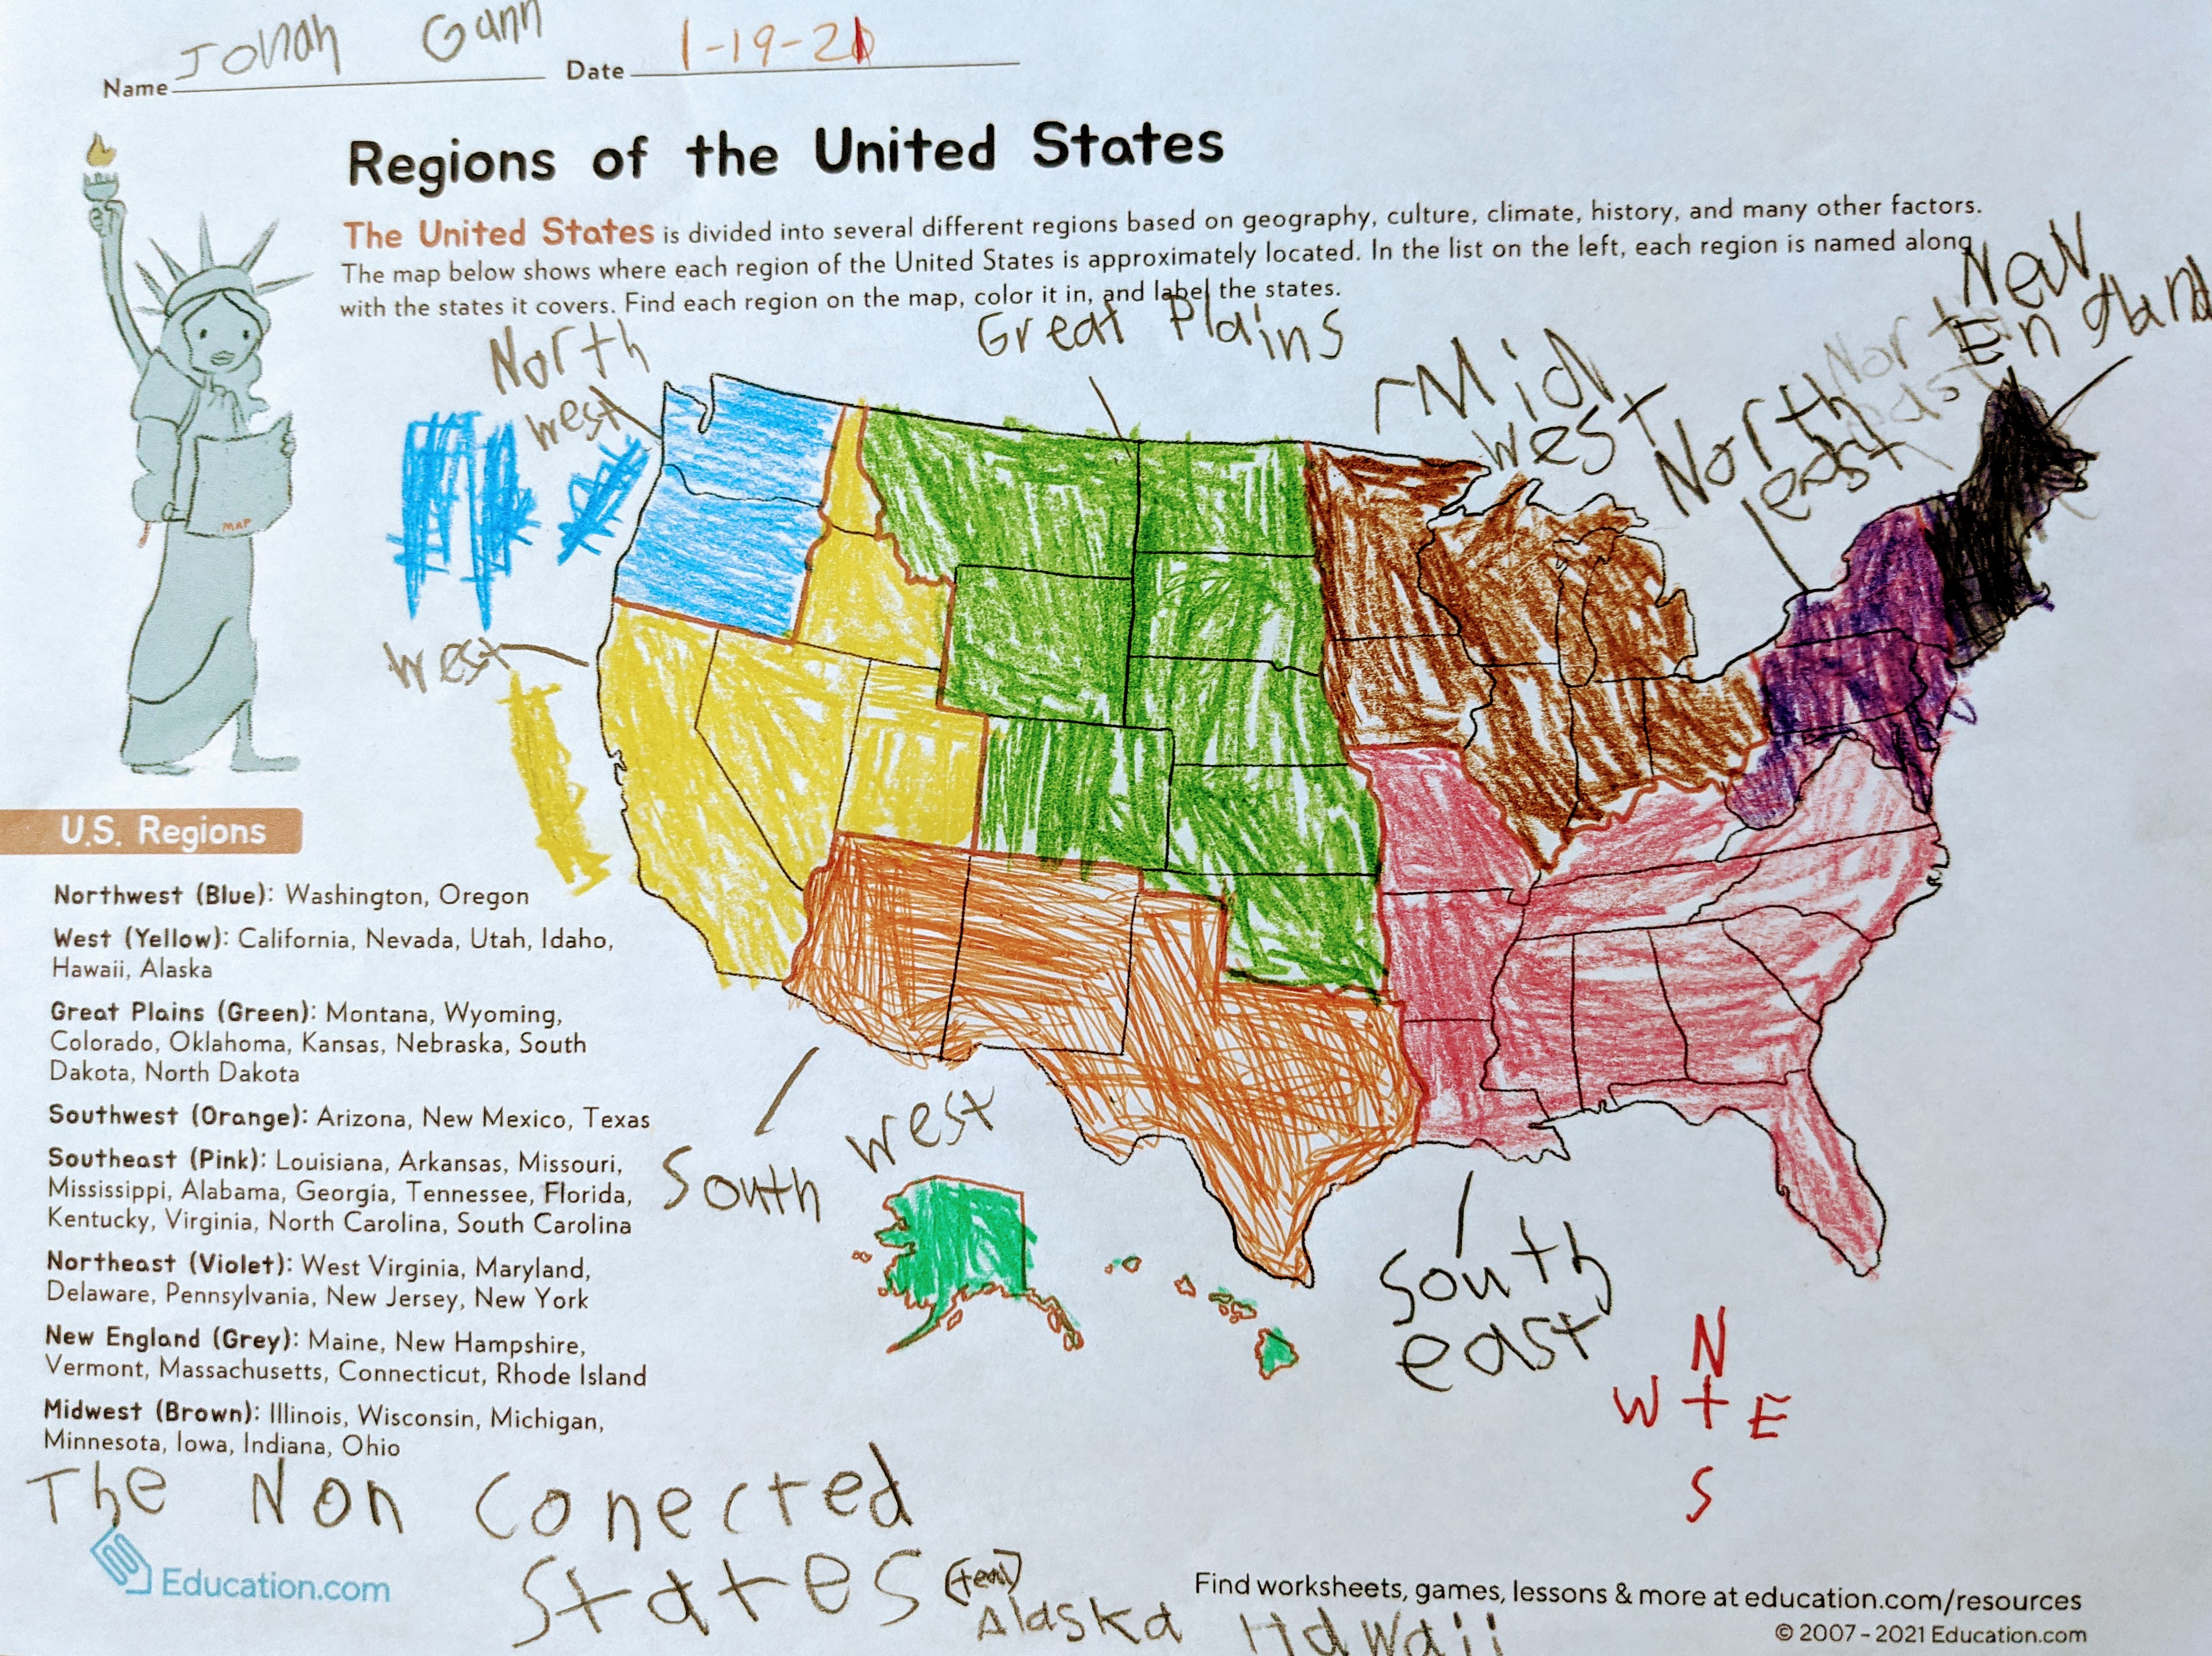 Name Jonah Gann Date 1-19-21
Regions of the United States
The United States is divided into several different regions based on geography, culture, climate, history, and many other factors.
The map below shows where each region of the United States is approximately located. In the list on the left, each region is named along
with the states it covers. Find each region on the map, color it in, and label the states.
North
west
Great Plains
Mid
west
North
east
North
east
New
England
MAP
west
U.S. Regions
Northwest (Blue): Washington, Oregon
West (Yellow): California, Nevada, Utah, Idaho,
Hawaii, Alaska
Great Plains (Green): Montana, Wyoming,
Colorado, Oklahoma, Kansas, Nebraska, South
Dakota, North Dakota
Southwest (Orange): Arizona, New Mexico, Texas
Southeast (Pink): Louisiana, Arkansas, Missouri,
Mississippi, Alabama, Georgia, Tennessee, Florida,
Kentucky, Virginia, North Carolina, South Carolina
Northeast (Violet): West Virginia, Maryland,
Delaware, Pennsylvania, New Jersey, New York
New England (Grey): Maine, New Hampshire,
Vermont, Massachusetts, Connecticut, Rhode Island
Midwest (Brown): Illinois, Wisconsin, Michigan,
Minnesota, Iowa, Indiana, Ohio
South west
South
east
N
W E
S
The Non Conected
States (teal)
Alaska Hawaii
Education.com
Find worksheets, games, lessons & more at education.com/resources
© 2007 - 2021 Education.com